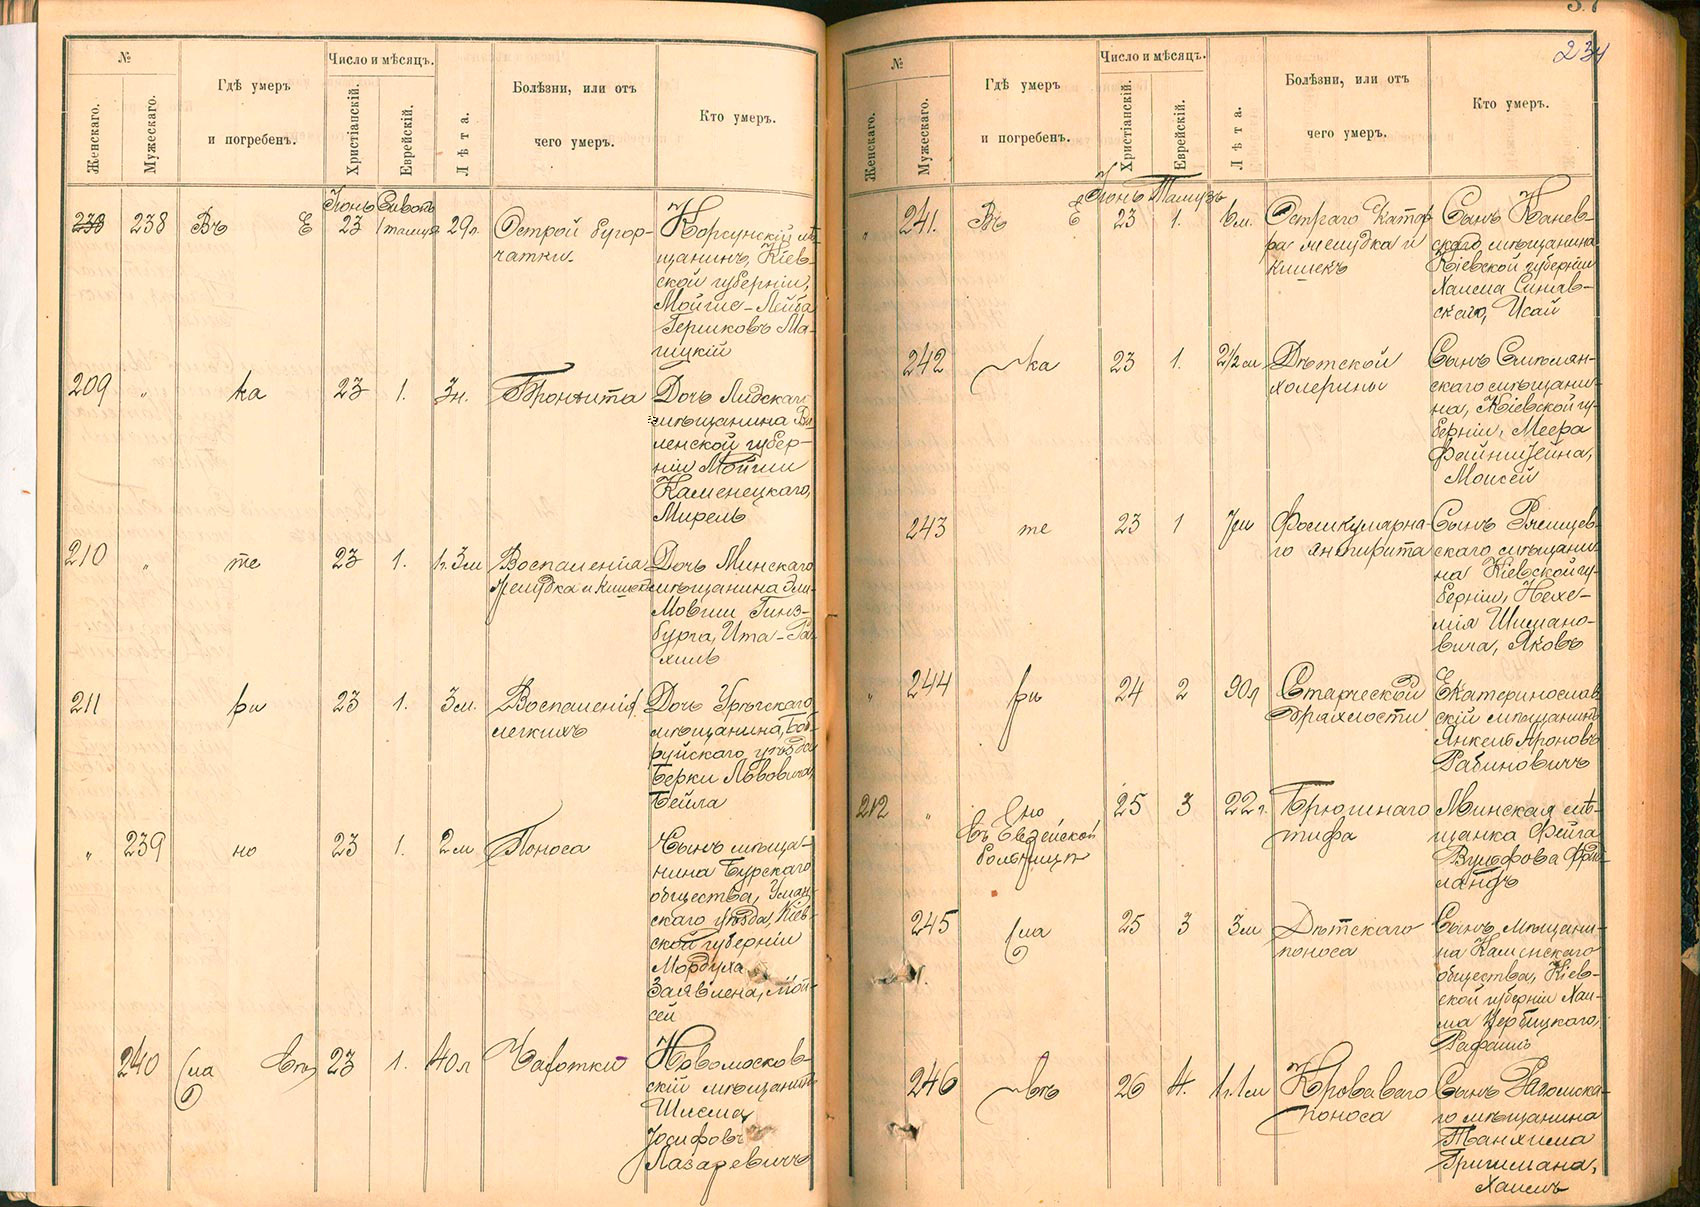 №
Женскаго.
Мужескаго.
Гдѣ умеръ
и погребенъ.
Число и мѣсяцъ.
Христіанскій.
Еврейскій.
Лѣта.
Болѣзни, или отъ
чего умеръ.
Кто умеръ.
Іюнь
238
Въ Е
23
29 л.
Острой бугор-
чатки
Корсунскій мѣ-
щанинъ, Кіев-
ской губерніи,
Мойше-Лейба
Гершковъ
209
"
ка
23
1.
3 н.
Бронхита
Дочь Лидскаго
мѣщанина Ви-
ленской губер-
ніи
Каменецкаго,
Мирель
210
"
те
23
1.
1 г. 3 м
Воспаленія
желудка и кишекъ
Дочь Минскаго
мѣщанина
Мовши Гинз-
бурга, Ита-Ра-
хиль
211
ри
23
1.
3 м.
Воспаленія
легкихъ
Дочь
мѣщанина, Боб-
руйскаго уѣзда
Берки Львовича,
Бейла
"
239
но
23
1.
2 м
Поноса
Сынъ мѣща-
нина
общества, Уман-
скаго уѣзда, Кіев-
ской губерніи
Мордуха
Мой-
сей
240
23
1.
40 л
Чахотки
Новомосков-
скій мѣщанинъ
Шлема
Іосифовъ
Лазаревичъ
234
№
Женскаго.
Мужескаго.
Гдѣ умеръ
и погребенъ.
Число и мѣсяцъ.
Христіанскій.
Еврейскій.
Лѣта.
Болѣзни, или отъ
чего умеръ.
Кто умеръ.
Іюнь Тамузъ
"
241.
Въ Е
23
1.
6 м.
Остраго катар-
ра желудка и
кишекъ
Сынъ Канев-
скаго мѣщанина
Кіевской губерніи
Хаима Синяв-
скаго, Исай
242
ка
23
1.
2½ м
Дѣтской
холерины
Сынъ Смѣлян-
скаго мѣщани-
на, Кіевской гу-
берніи, Меера
Файнштейна,
Моисей
243
те
23
1
7 м
Фоликулярна-
го
Сынъ Ржищев-
скаго мѣщани-
на Кіевской гу-
берніи, Нехе-
мія Шимано-
вича, Яковъ
"
244
ри
24
2
90 л
Старческой
дряхлости
Екатеринослав-
скій мѣщанинъ
Янкель Ароновъ
Рабиновичъ
212
"
но
въ Еврейской
больницѣ
25
3
22 г.
Брюшнаго
тифа
Минская мѣ-
щанка Фейга
Вульфова Фрид-
ландъ
245
ма
25
3
3 м
Дѣтскаго
поноса
Сынъ мѣщани-
на
общества, Кіев-
ской губерніи Хаи-
ма Вербицкаго,
Рафаилъ
246
26
4.
1 г. 1 м
Кроваваго
поноса
Сынъ Радомска-
го мѣщанина
Танхима
Хаимъ